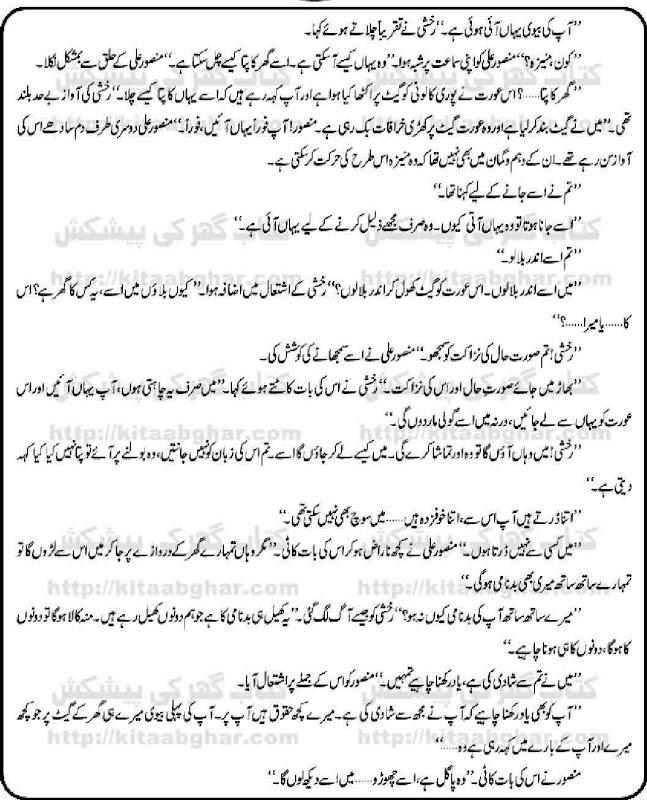 ’’آپ کی بیوی یہاں آئی ہوئی ہے۔‘‘ رخشی نے تقریباً چلاتے ہوئے کہا۔
’’کون، منیزہ؟‘‘ منصور علی کو اپنی سماعت پر شبہ ہوا۔ ’’وہ یہاں کیسے آ سکتی ہے۔ اسے گھر کا پتا کیسے چل سکتا ہے۔‘‘ منصور علی کے حلق سے بمشکل نکلا۔
’’گھر کا پتا......؟ اس عورت نے پوری کالونی کو گیٹ پر اکٹھا کیا ہوا ہے اور آپ کہہ رہے ہیں کہ اسے یہاں کا پتا کیسے چلا۔‘‘ رخشی کی آواز بے حد بلند
تھی۔ ’’میں نے گیٹ بند کر لیا ہے اور وہ عورت گیٹ پر کھڑی خرافات بک رہی ہے۔ منصور! آپ فوراً یہاں آئیں، فوراً۔‘‘ منصور علی دوسری طرف دم سادھے اس کی
آواز سن رہے تھے۔ ان کے وہم و گمان میں بھی نہیں تھا کہ وہ منیزہ اس طرح کی حرکت کر سکتی ہے۔
’’تم نے اسے جانے کے لیے کہنا تھا۔‘‘
’’اسے جانا ہوتا تو وہ یہاں آتی کیوں۔ وہ صرف مجھے ذلیل کرنے کے لیے یہاں آئی ہے۔‘‘
’’تم اسے اندر بلا لو۔‘‘
’’میں اسے اندر بلا لوں۔ اس عورت کو گیٹ کھول کر اندر بلا لوں؟‘‘ رخشی کے اشتعال میں اضافہ ہوا۔ ’’کیوں بلاؤں میں اسے، یہ کس کا گھر ہے؟ اس
کا...... یا میرا......؟‘‘
’’رخشی! تم صورت حال کی نزاکت کو سمجھو۔‘‘ منصور علی نے اسے سمجھانے کی کوشش کی۔
’’بھاڑ میں جائے صورتِ حال اور اس کی نزاکت۔‘‘ رخشی نے اس کی بات کاٹتے ہوئے کہا۔ ’’میں صرف یہ چاہتی ہوں، آپ یہاں آئیں اور اس
عورت کو یہاں سے لے جائیں، ورنہ میں اسے گولی مار دوں گی۔‘‘
’’رخشی! میں وہاں آؤں گا تو وہ اور تماشا کرے گی۔ میں کیسے لے کر جاؤں گا اسے۔ تم اس کی زبان کو نہیں جانتیں، وہ بولنے پر آئے تو پتا نہیں کیا کیا کہہ
دیتی ہے۔‘‘
’’اتنا ڈرتے ہیں آپ اس سے، اتنا خوفزدہ ہیں...... میں سوچ بھی نہیں سکتی تھی۔‘‘
’’میں کسی سے نہیں ڈرتا ہوں۔‘‘ منصور علی نے کچھ ناراض ہو کر اس کی بات کاٹی۔ ’’مگر وہاں تمہارے گھر کے دروازے پر جا کر میں اس سے لڑوں گا تو
تمہارے ساتھ ساتھ میری بھی بدنامی ہوگی۔‘‘
’’میرے ساتھ ساتھ آپ کی بدنامی کیوں نہ ہو؟‘‘ رخشی کو جیسے آگ لگ گئی۔ ’’یہ کھیل ہی بدنامی کا ہے جو ہم دونوں کھیل رہے ہیں۔ منہ کالا ہوگا تو دونوں
کا ہوگا، دونوں کا ہی ہونا چاہیے۔‘‘
’’میں نے تم سے شادی کی ہے، یاد رکھنا چاہیے تمہیں۔‘‘ منصور کو اس کے جملے پر اشتعال آیا۔
’’آپ کو بھی یاد رکھنا چاہیے کہ آپ نے مجھ سے شادی کی ہے۔ میرے کچھ حقوق ہیں آپ پر۔ آپ کی پہلی بیوی میرے ہی گھر کے گیٹ پر جو کچھ
میرے اور آپ کے بارے میں کہہ رہی ہے وہ......‘‘
منصور نے اس کی بات کاٹی۔ ’’وہ پاگل ہے، اسے چھوڑو...... میں اسے دیکھ لوں گا۔‘‘
کتاب گھر کی پیشکش
http://kitaabghar.com